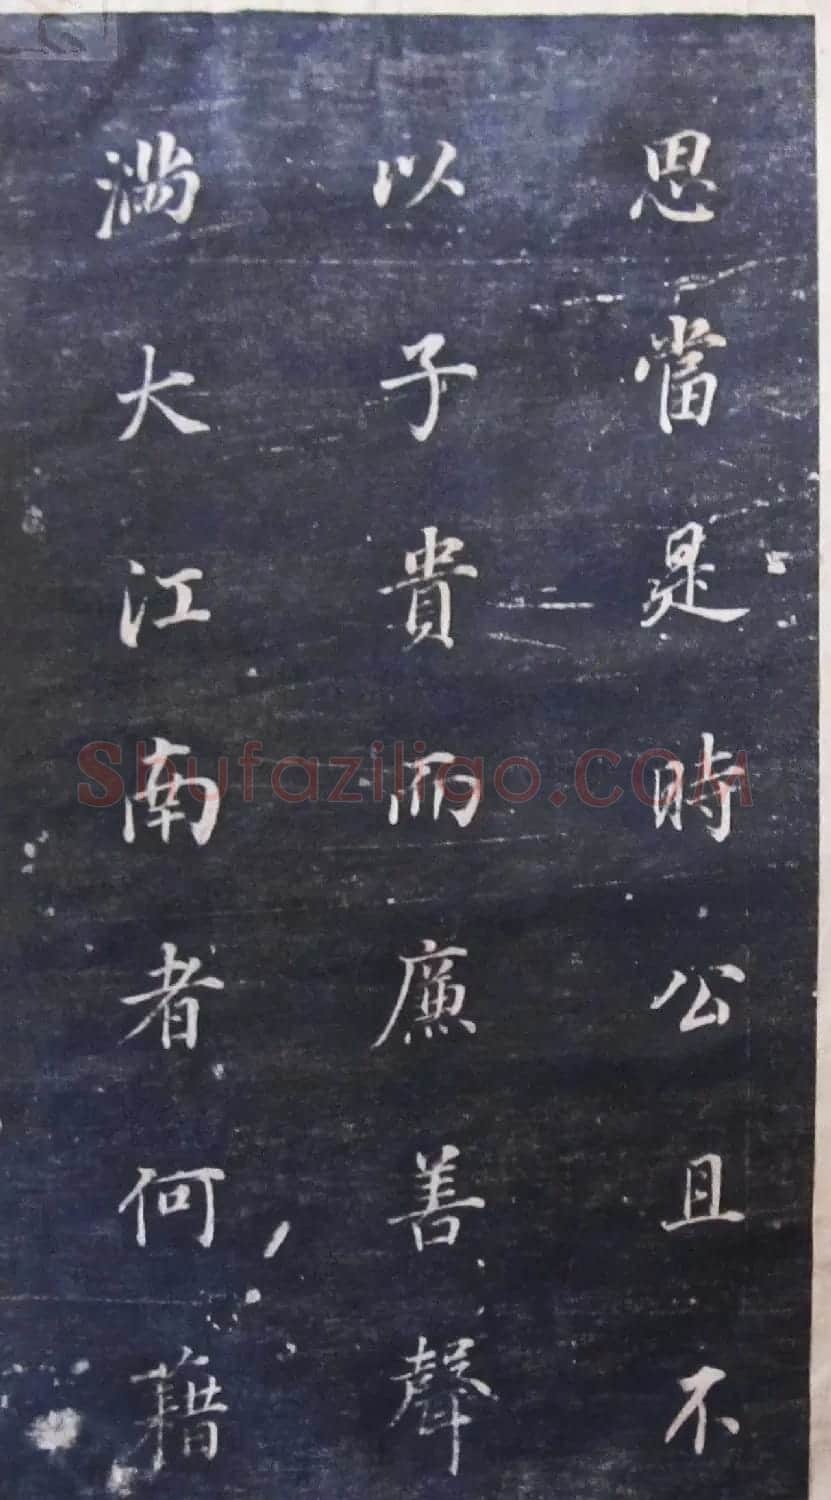 思當是時公且不
以子貴而廉善聲
滿大江南者何藉
Shufaziligo.COM